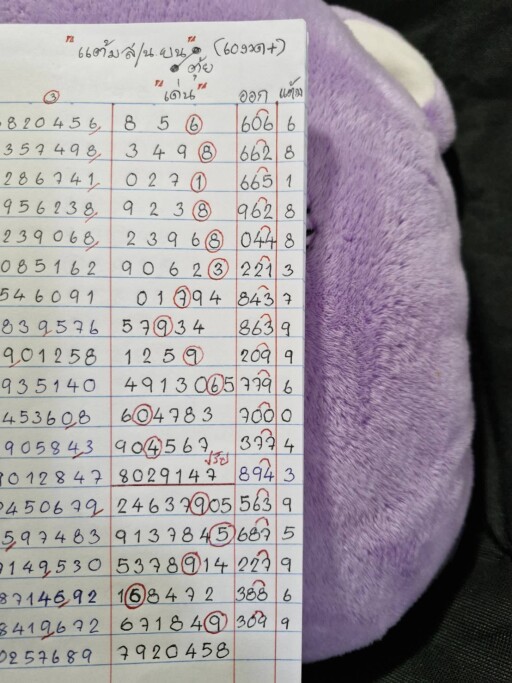 "แต้มส/นยน" (เองวด+)
ตุ้ย
③ "เด่น" ออก แต้ม
820456 8 5 6 606 6
357498 3 4 9 8 662 8
286741 0 2 7 1 665 1
956238 9 2 3 8 962 8
239068 2 3 9 6 8 044 8
085162 9 0 6 2 3 221 3
546091 0 1 7 9 4 843 7
839576 5 7 9 3 4 863 9
901258 1 2 5 9 209 9
935140 4913065 779 6
453608 604783 700 0
905843 904567 377 4
9012847 8029147 894 3
2450679 24637905 563 9
597483 9137845 687 5
149530 5378914 227 9
8714692 168472 388 6
8419672 671849 309 9
0257689 7920458